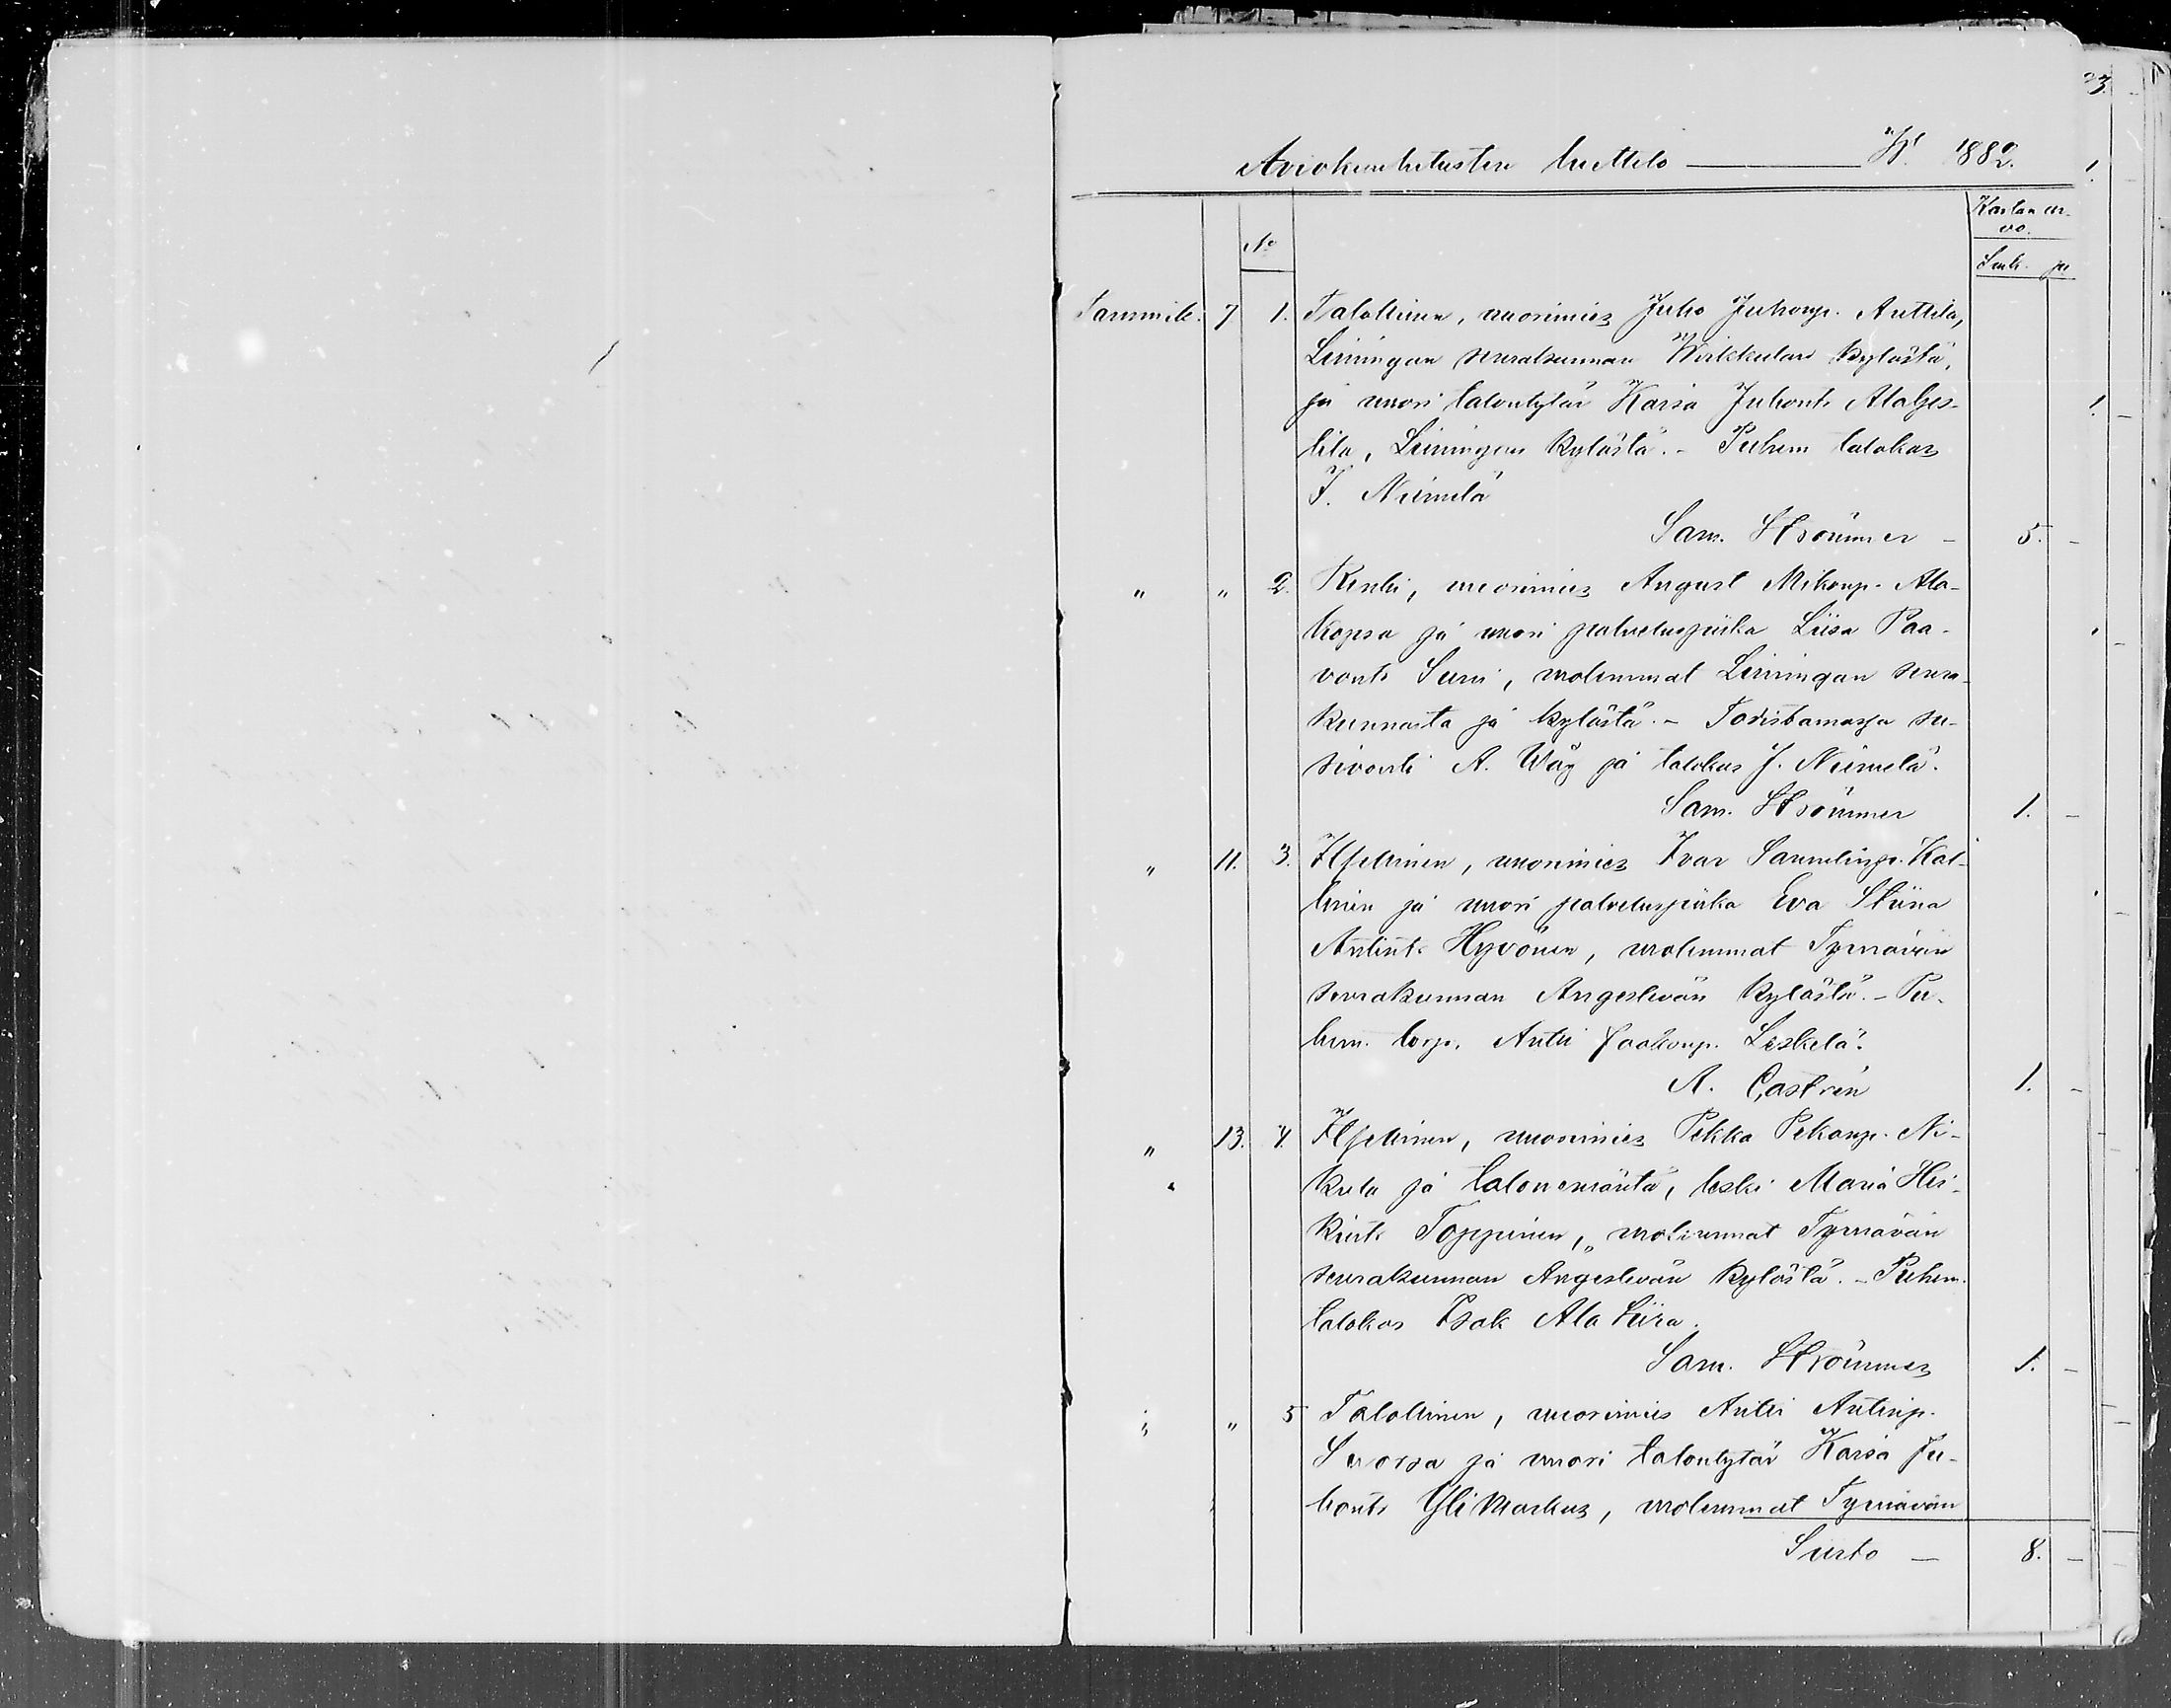 23.
Aviokuulutusten luettelo — W. 1882.
Kartan ar-
vo.
No
Smk. pi
Tammik. 7 1. Talollinen, nuorimies Juho Juhonp. Anttila,
Limingan seurakunnan Wirkkulan kylästä,
ja nuori talontytär Kaisa Juhont. Alaljes-
kila, Limingan kylästä. - Puhem. talokas
J. Niemelä
Sam. Strömmer - 5. -
" " 2. Renki, nuorimies August Mikonp. Ala-
kopsa ja nuori palveluspiika Liisa Paa-
vont. Suni, molemmat Limingan seura-
kunnasta ja kylästä. - Todistamassa su-
A. Wäy ja talokas J. Niemelä.
Sam. Strömmer 1. -
" 11. 3. Itsellinen, nuorimies Ivar Samulinp. Kal-
linen ja nuori palveluspiika Eva Stiina
Antint. Hyvönen, molemmat Tyrnävän
seurakunnan Angeslevän kylästä. - Pu-
hem. torp. Antti Jaakonp. Leskelä.
A. Castrén 1. -
" 13. 4. Itsellinen, nuorimies Pekka Pekanp. Ni-
kula ja talonemäntä, leski Maria Hei-
kint. Toppinen, molemmat Tyrnävän
seurakunnan Angeslevän kylästä. - Puhem.
talokas Isak Ala Siira.
Sam. Strömmer 1. -
" " 5 Talollinen, nuorimies Antti Antinp.
Suorsa ja nuori talontytär Kaisa Ju-
hont. Yli Markus, molemmat Tyrnävän
Siirto - 8. -